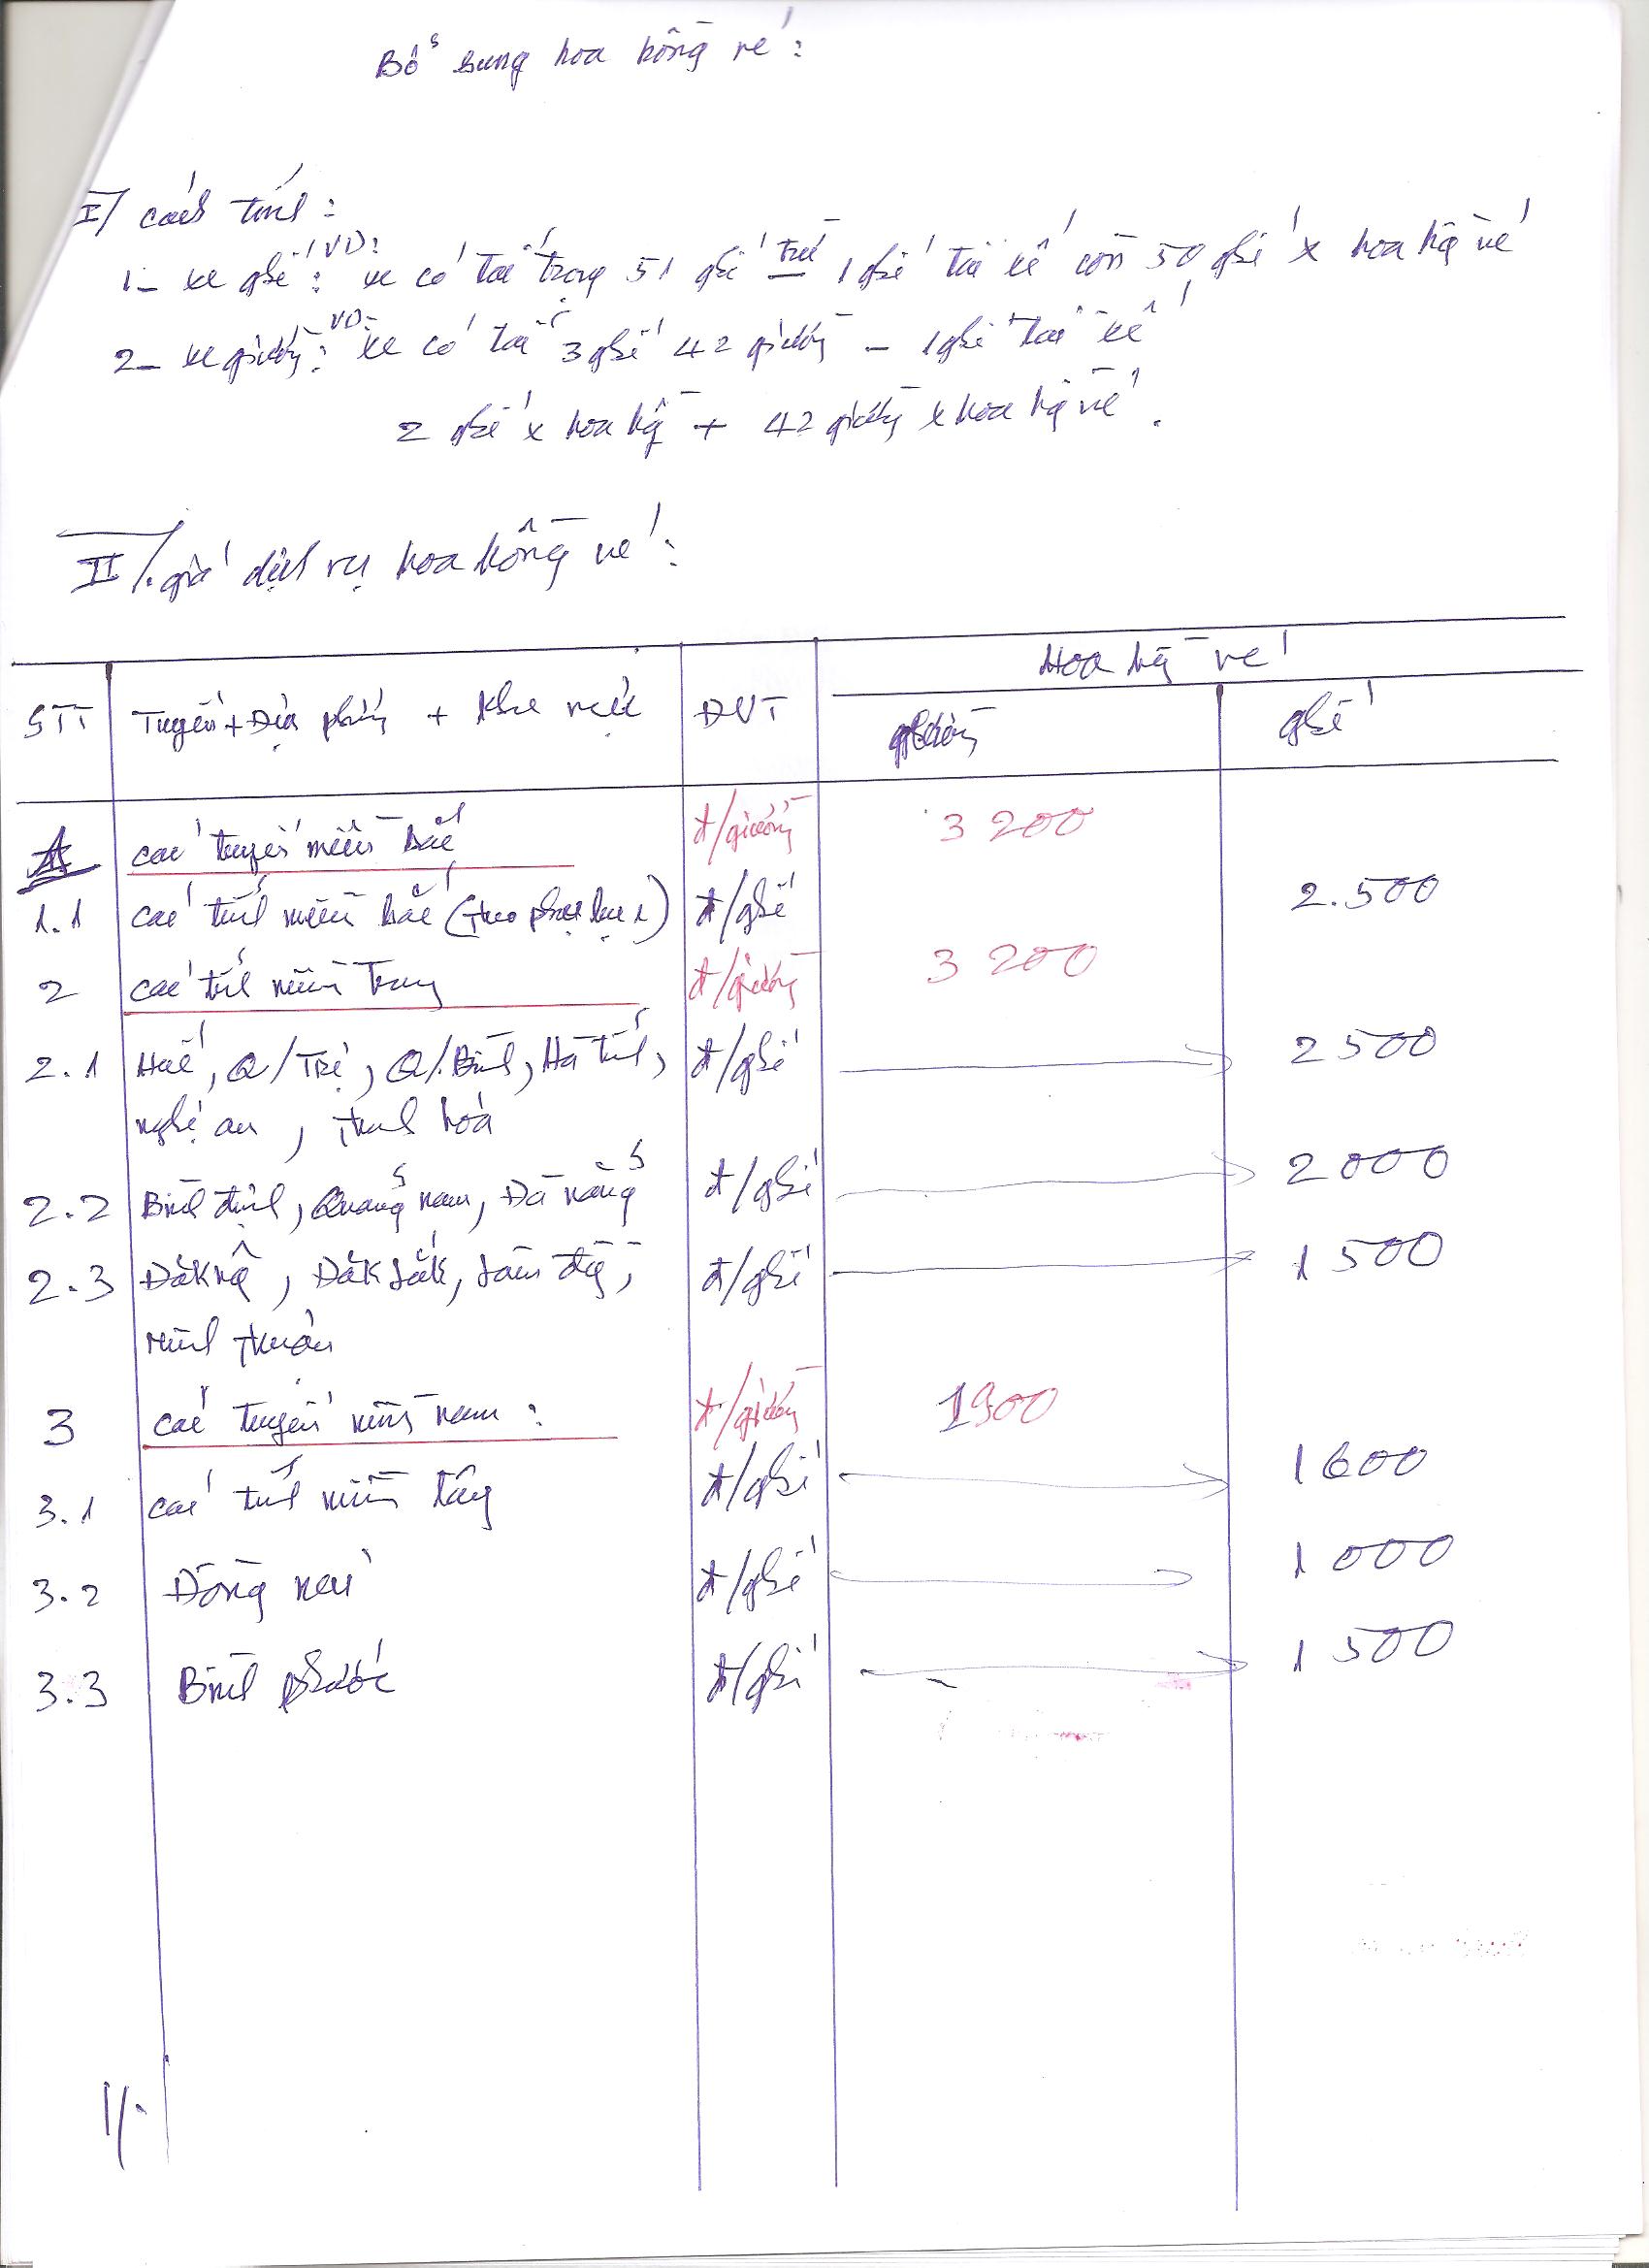 Bổ sung hoa hồng vé:
I/ cách tính:
1- xe ghế: VD: xe có tải trọng 51 ghế trừ 1 ghế tài xế còn 50 ghế x hoa hg vé
2- xe giường: VD: xe có tải 3 ghế 42 giường - 1 ghế tài xế
2 ghế x hoa hg + 42 giường x hoa hg vé.
II/. giá dịch vụ hoa hồng vé:
Hoa hg vé
STT Tuyến + Địa phương + khu vực ĐVT giường ghế
các tuyến miền bắc đ/giường 3 200
1.1 các tỉnh miền bắc (theo phụ lục 1) đ/ghế 2.500
2 các tỉnh miền Trung đ/giường 3 200
2.1 Huế, Q/Trị, Q/Bình, Hà tĩnh, đ/ghế 2 500
nghệ an, Thanh hóa
2.2 Bình định, Quảng nam, Đà nẵng đ/ghế 2 000
2.3 Đăk ng, Đăk Lăk, Lâm đg, đ/ghế 1 500
ninh thuận
3 các tuyến miền nam: đ/giường 1900
3.1 các tỉnh miền tây đ/ghế 1 600
3.2 Đồng nai đ/ghế 1 000
3.3 Bình phước đ/ghế 1 500